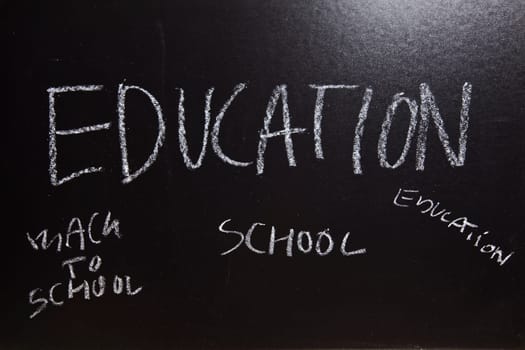 EDUCATION
BACK
TO
SCHOOL
SCHOOL
EDUCATION